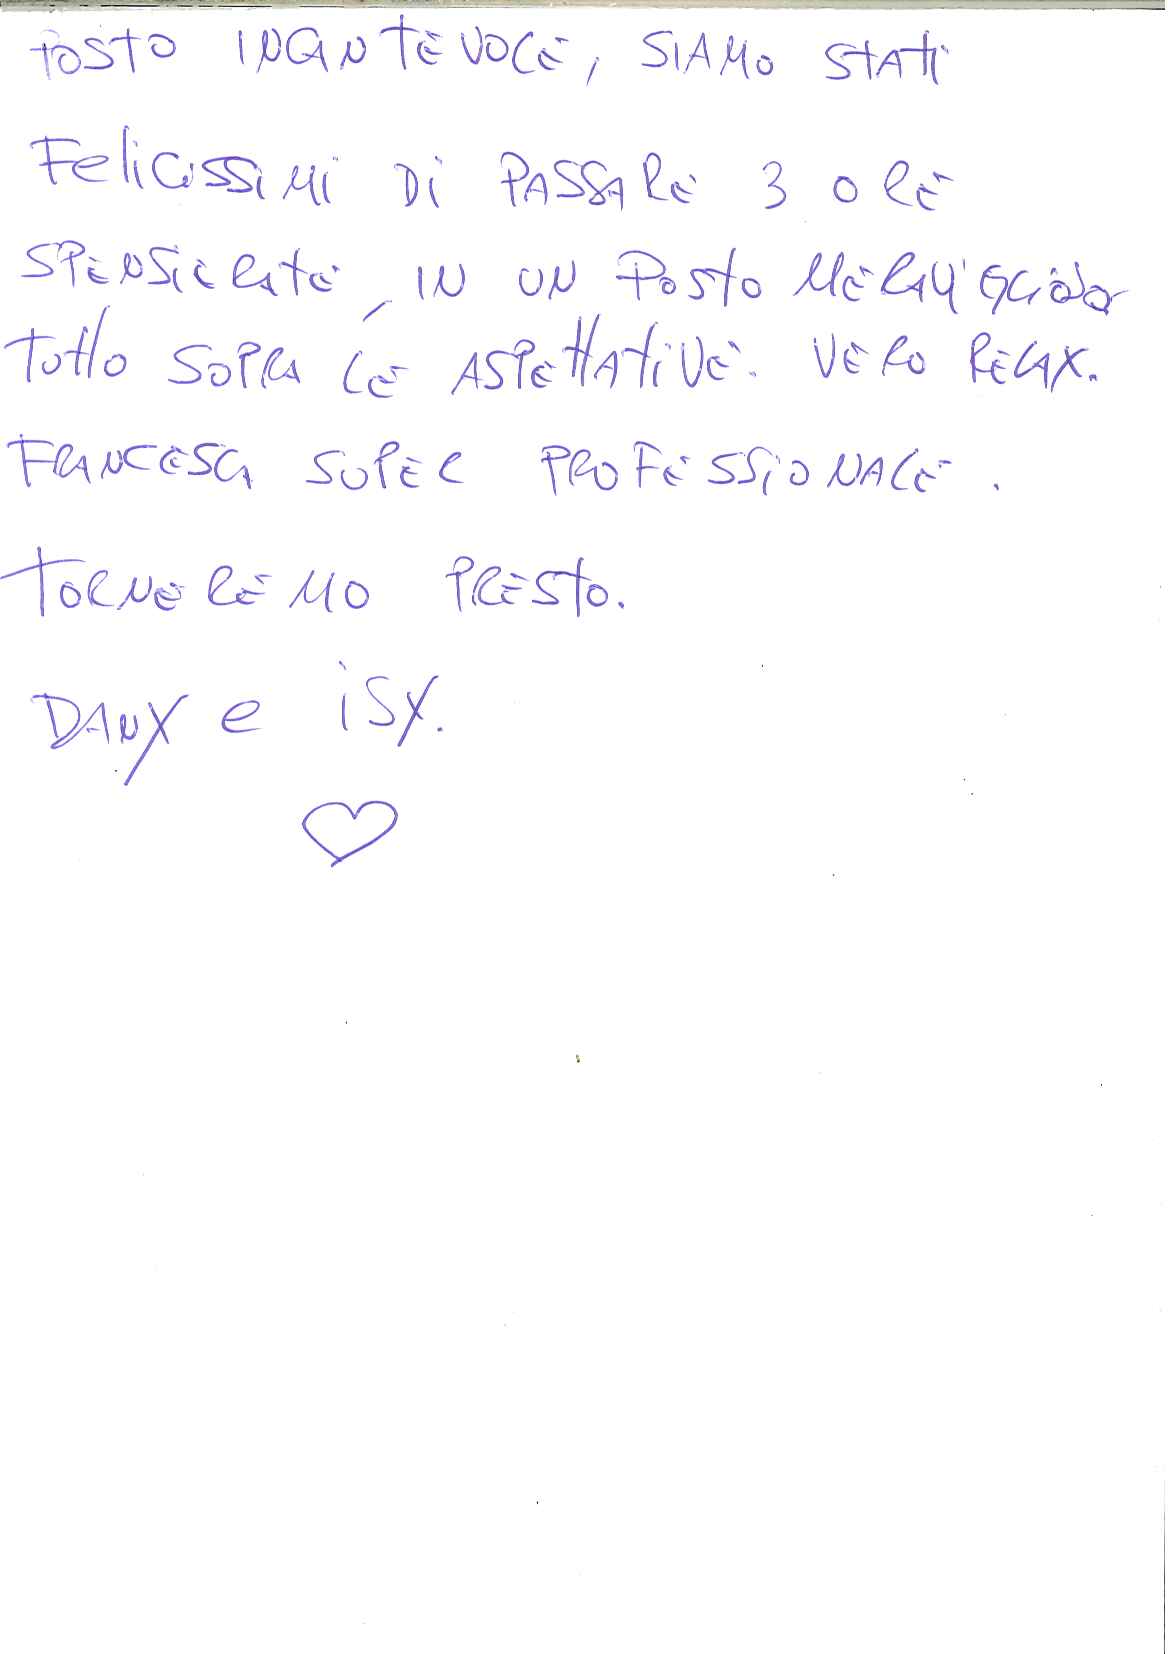 POSTO INCANTEVOLE, SIAMO STATI
FELICISSIMI DI PASSARE 3 ORE
SPENSIERATE, IN UN POSTO MERAVIGLIOSO
TUTTO SOPRA LE ASPETTATIVE. VERO RELAX.
FRANCESCA SUPER PROFESSIONALE.
TORNEREMO PRESTO.
DANY e ISY.